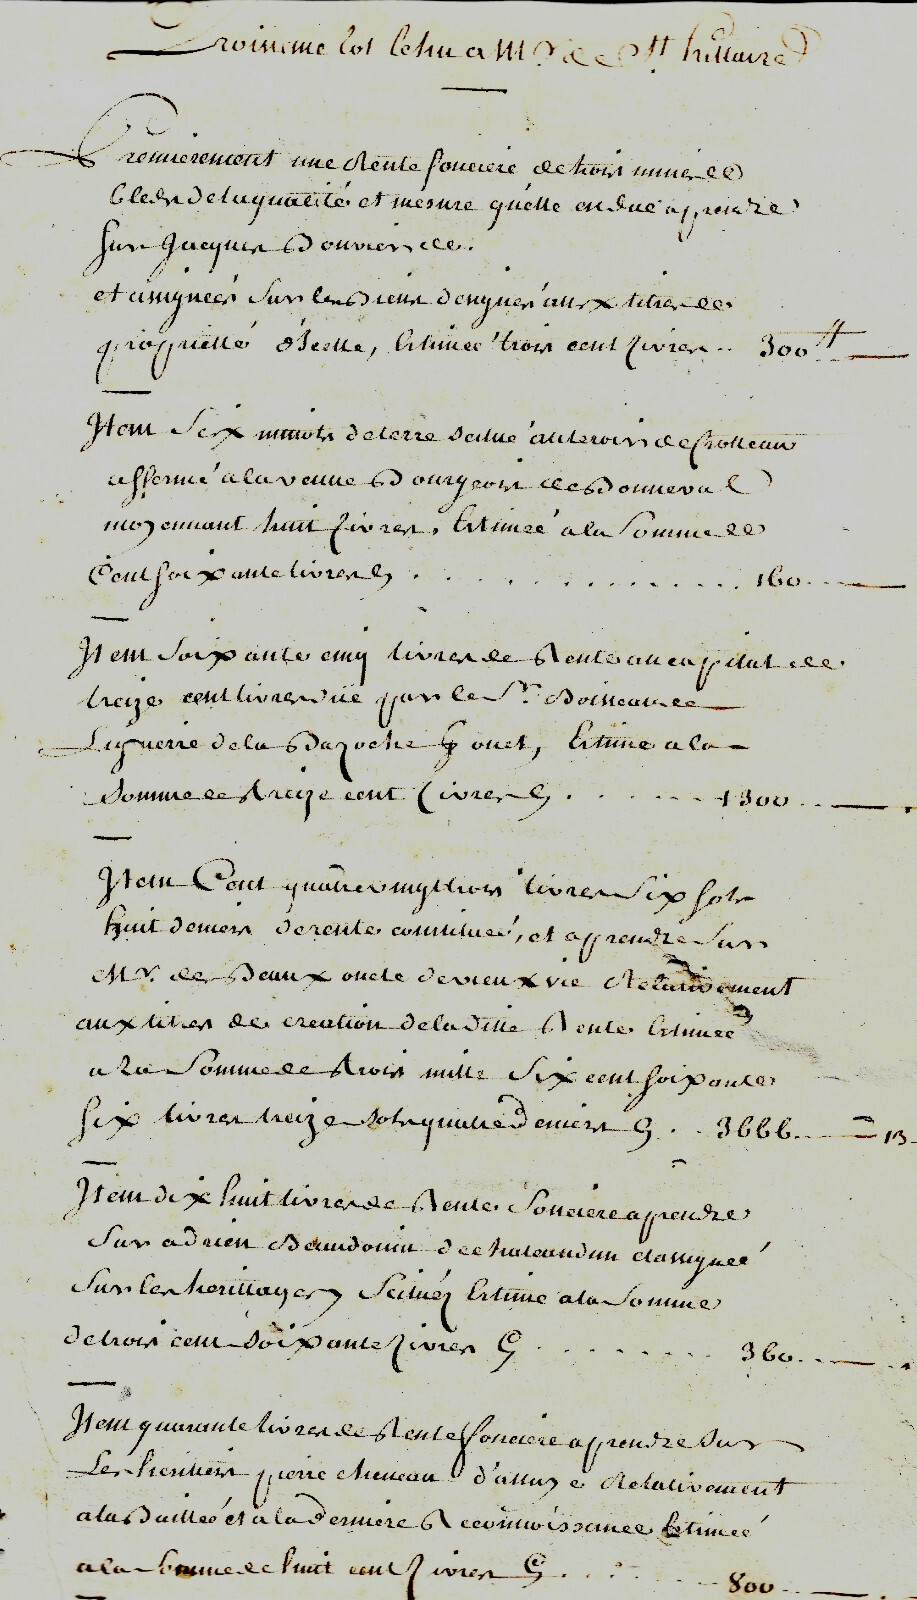 Troisieme lot Echu a Mr. de St. hillaire
Premierement une Rente fonciere de trois mines de
bled de la qualité et mesure quelle en due a prendre
sur Jacques Bouvier de.
et assignées sur les Biens designés aux titres de
proprietté d'Icelle, Estimée trois cent livres .. 300 tt
Item Six minots de terre scitué au teroir de
affermé a la veuve Bourgeois de Bonneval
moyennant huit livres. Estimeé a la Somme de
Cent soixante livres . . . . . . . 160
Item soixante cinq livres de Rente au capital de
treize cent livres due par le Sr. Boisseau de
Liguerie de la Bazoche gouet, Estimé a la
Somme de treize cent livres . . . . . 1300
Item Cent quatrevingt trois livres Six sols
huit deniers de rente constitueé, et a prendre Sur
Mr. de Beaux oncle de vieux vic Relativement
aux titres de creation de la ditte Rente Estimeé
a La Somme de trois mille Six cent soixante
six livres treize sols quatre deniers . . 3666 13
Item dix huit livres de Rente fonciere a prendre
Sur adrien Baudouin de chateaudun et assigneé
Sur les herittages Scituéz Estimé a la Somme
de trois cent Soixante livres . . . . . . 360
Item quarante livres de Rente fonciere a prendre Sur
Les heritiers pierre cheneau d'alluye Relativement
a la Bailleé et a la Derniere Reconnoissance Estimeé
a la Somme de huit cent livres . . . . . 800